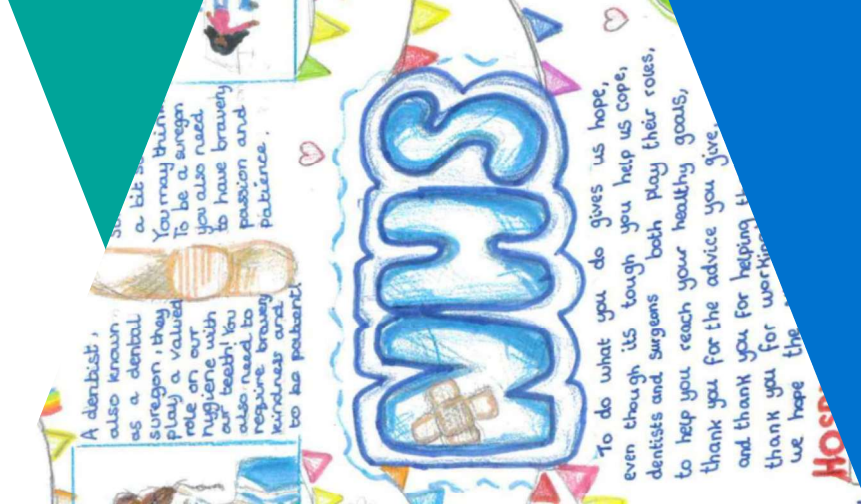 A dentist,
also known
as a dental
suregon, they
play a valued
role on our
hygiene with
our teeth! You
also need to
require bravery
kindness and
to be patient!
a bit
You may think
To be a suregon
you also need
to have bravery
passion and
patience.
NHS
To do what you do gives us hope,
even though its tough you help us cope,
dentists and surgeons both play their roles,
to help you reach your healthy goals,
thank you for the advice you give,
and thank you for helping
thank you for working
we hope the